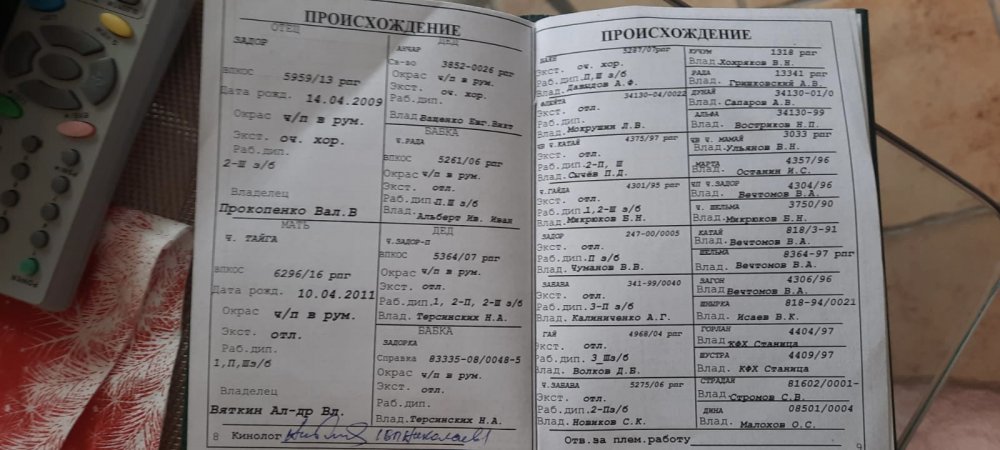 ПРОИСХОЖДЕНИЕ
ОТЕЦ
ЗАДОР
ВПКОС 5959/13 рпг
Дата рожд. 14.04.2009
Окрас ч/п в рум.
Экст. оч. хор.
Раб.дип.
2-Ш з/б
Владелец
Прокопенко Вал.В
МАТЬ
ч. ТАЙГА
ВПКОС 6296/16 рпг
Дата рожд. 10.04.2011
Окрас ч/п в рум.
Экст. отл.
Раб.дип.
1,П,Шз/б
Владелец
Вяткин Ал-др Вл.
8 Кинолог
ДЕД
АНЧАР
Св-во 3852-0026 рпг
Окрас ч/п в рум.
Экст. оч. хор.
Раб.дип.
Влад. Ваценко Евг.Викт
БАБКА
ч.РАДА
ВПКОС 5261/06 рпг
Окрас ч/п в рум.
Экст. отл.
Раб.дип П.Ш з/б
Влад. Альберт Ив. Иван
ДЕД
Ч.ЗАДОР-П
ВПКОС 5364/07 рпг
Окрас ч/п в рум.
Экст. отл.
Раб.дип.1, 2-П, 2-Ш з/б
Влад. Терсинских Н.А.
БАБКА
ЗАДОРКА
Справка 83335-08/0048-5
Окрас ч/п в рум.
Экст. отл.
Раб.дип.
Влад. Терсинских Н.А.
ПРОИСХОЖДЕНИЕ
5287/07рпг
Экст. оч. хор.
Раб.дип.П,Ш з/б
Влад. Давыдов А.Ф.
ФЛЕЙТА 34130-04/0022
Экст. отл.
Раб.дип.
Влад. Мокрушин Л.В.
ЧВ ч.КАТАЙ 4375/97 рпг
Экст. отл.
Раб.дип. 2-П, Ш
Влад. Сычёв П.Д.
ч.ГАЙДА 4301/95 рпг
Экст. отл.
Раб.дип.1,2-Ш з/б
Влад. Микрюков Б.Н.
ЗАДОР 247-00/0005
Экст. отл.
Раб.дип.П з/б
Влад. Чуманов В.В.
ЗАБАВА 341-99/0040
Экст. отл.
Раб.дип. 3-П з/б
Влад. Калиниченко А.Г.
ГАЙ 4968/04 рпг
Экст. отл.
Раб.дип. 3_Шз/б
Влад. Волков Д.В.
Ч.ЗАБАВА 5275/06 рпг
Экст. отл.
Раб.дип. 2-Пз/б
Влад. Новиков С.К.
КУЧУМ 1318 рпг
Влад. Хохряков В.Н.
РАДА 13341 рпг
Влад. Гришковский А.В.
ДУНАЙ 34130-01/0
Влад. Сапаров А.В.
АЛЬФА 34130-99
Влад. Востриков Н.П.
ЧВ Ч. МАМАЙ 3033 рпг
Влад. Ульянов В.Н.
МАРТА 4357/96
Влад. Останин И.С.
ЧП Ч.ЗАДОР 4304/96
Влад. Вечтомов В.А.
Ч. ШЕЛЬМА 3750/90
Влад. Микрюков Б.Н.
КАТАЙ 818/3-91
Влад. Вечтомов В.А.
ШЕЛЬМА 8364-97 рпг
Влад. Вечтомов В.А.
ЗАГОН 4306/96
Влад. Вечтомов В.А.
ШНЫРКА 818-94/0021
Влад. Исаев В.К.
ГОРЛАН 4404/97
Влад. КФХ Станица
ШУСТРА 4409/97
Влад. КФХ Станица
СТРАДАЙ 81602/0001-
Влад. Стромов С.В.
ДИНА 08501/0004
Влад. Малохов О.С.
Отв.за плем.работу
9